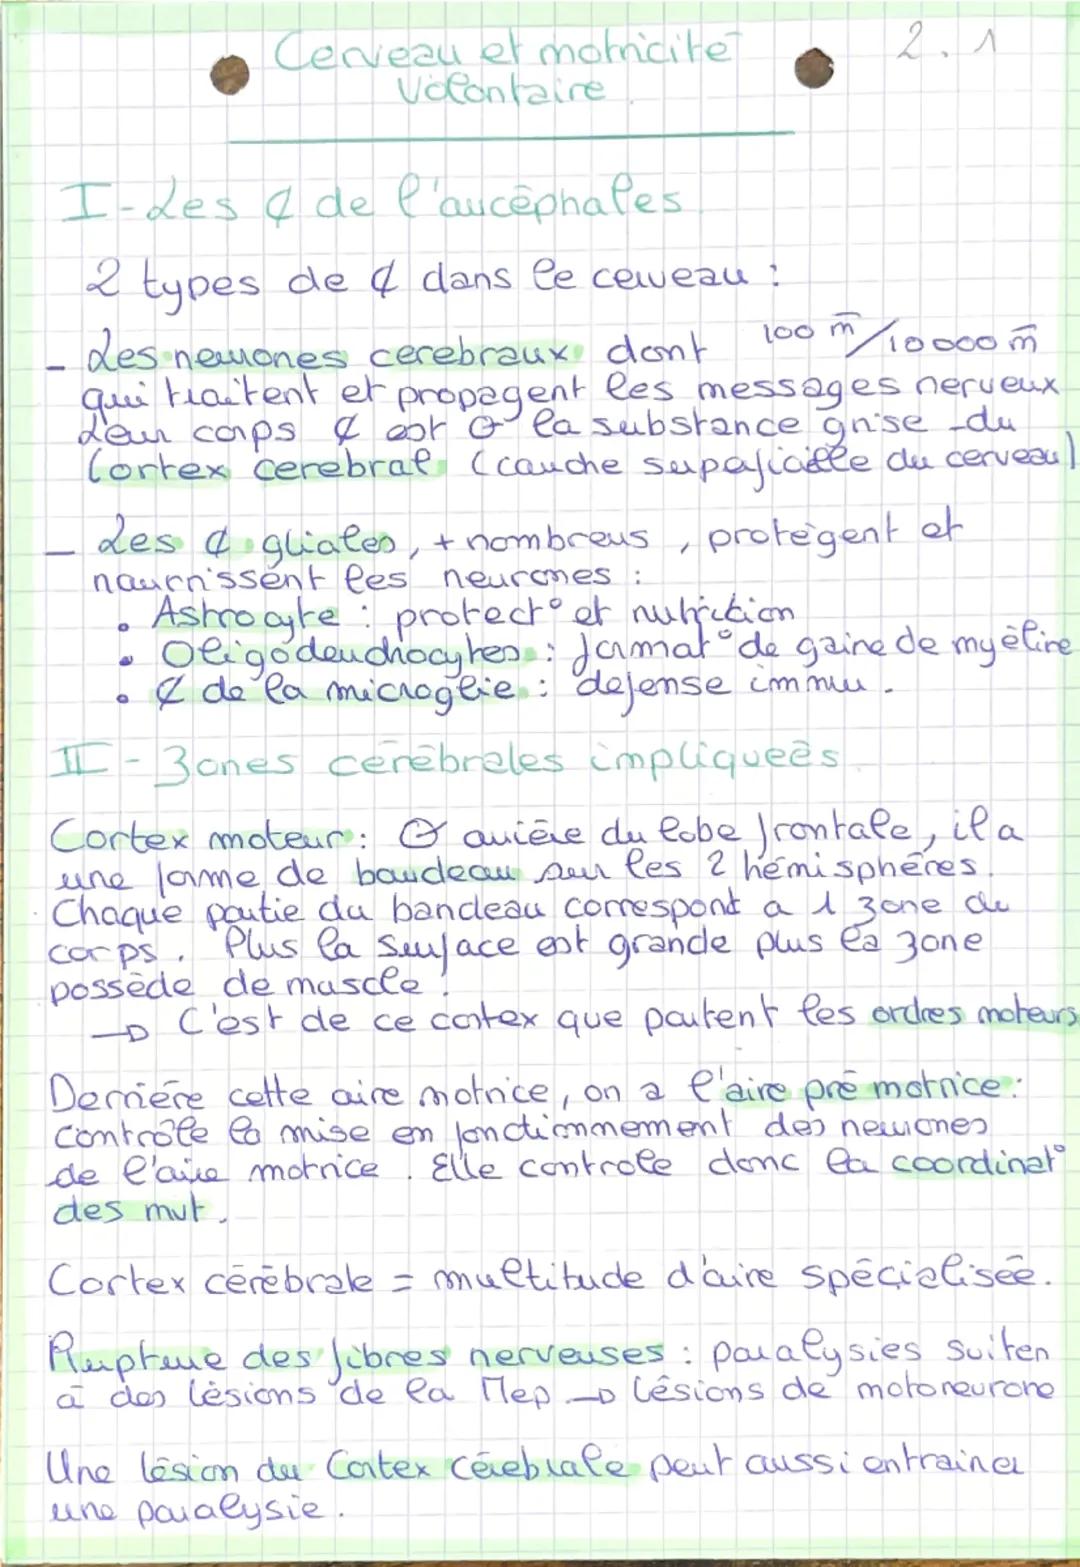 Cerveau et motricité 2.1
Volontaire.
I-Les ¢ de l'aucéphales.
2 types de ¢ dans le cerveau :
- Les neurones cerebraux dont 100 m̄/10000 m̄
qui traitent et propagent les messages nerveux
Leur corps ¢ est la substance grise du
Cortex cerebral (couche superficielle du cerveau)
- Les ¢ gliales, + nombreus, protègent et
nourrissent les neurones :
• Astrocyte : protect° et nutrition
• Oligodendrocytes : format° de gaine de myéline
• ¢ de la microglie : défense immu.
II - Zones cérébrales impliqueés.
Cortex moteur : arrière du lobe frontale, il a
une forme de bandeau sur les 2 hémisphères.
Chaque partie du bandeau correspont a 1 zone du
corps. Plus la surface est grande plus la zone
possède de muscle !
→ C'est de ce cortex que partent les ordres moteurs.
Derrière cette aire motrice, on a l'aire pré motrice :
contrôle la mise en fonctionnement des neurones
de l'aire motrice. Elle controle donc la coordinat°
des mvt.
Cortex cérébrale = multitude d'aire spécialisée.
Rupture des fibres nerveuses : paralysies suiten
à des lésions de la Mep → lésions de motoneurone
Une lésion du Cortex cérébrale peut aussi entrainer
une paralysie.